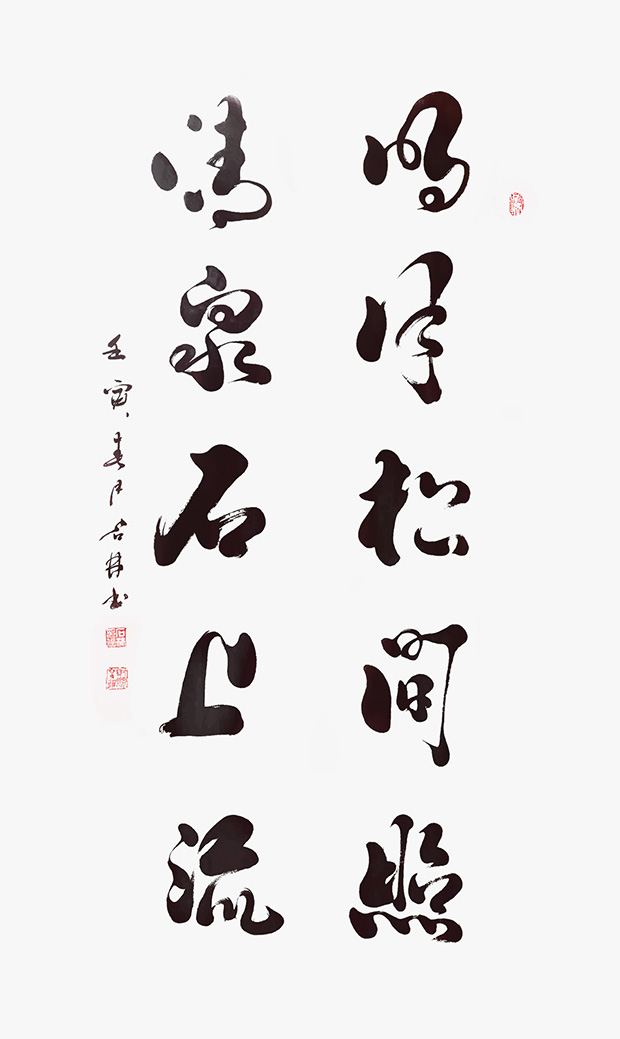 明月松间照
清泉石上流
壬寅春月吉林书